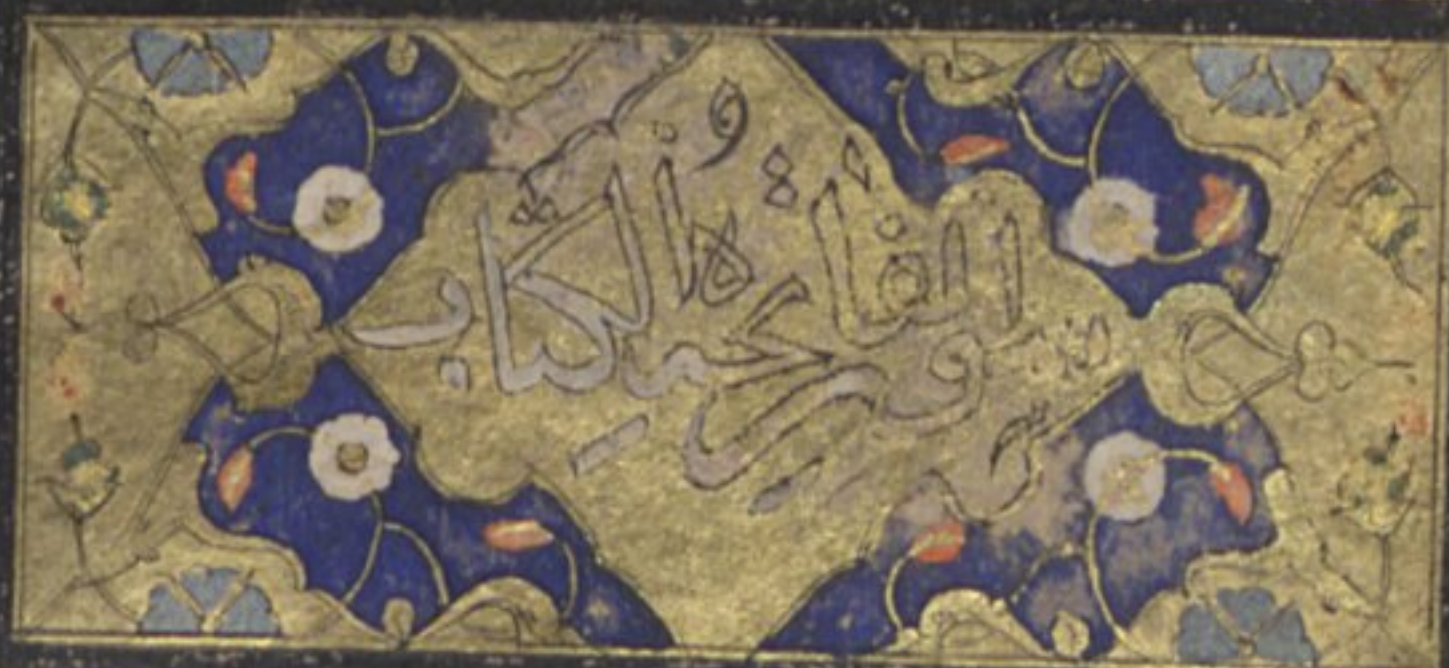 سورة الفاتحة الكتاب